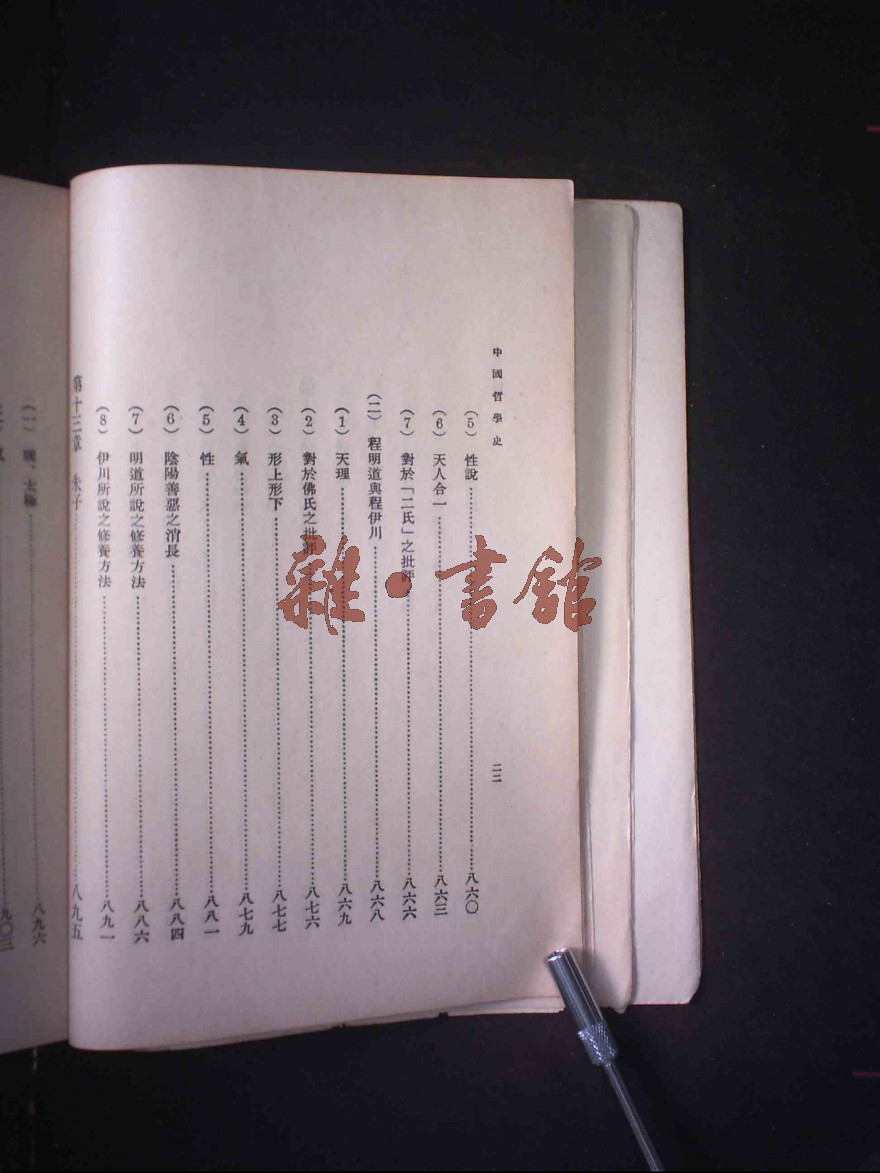 中國哲學史
二二
(5) 性說……八六〇
(6) 天人合一……八六三
(7) 對於「二氏」之批評……八六六
(二) 程明道與程伊川……八六八
(1) 天理……八六九
(2) 對於佛氏之批評……八七六
(3) 形上形下……八七七
(4) 氣……八七九
(5) 性……八八一
(6) 陰陽善惡之消長……八八四
(7) 明道所說之修養方法……八八六
(8) 伊川所說之修養方法……八九一
第十三章 朱子……八九五
(一) 理、太極……八九六
氣……九〇三
雜·書館